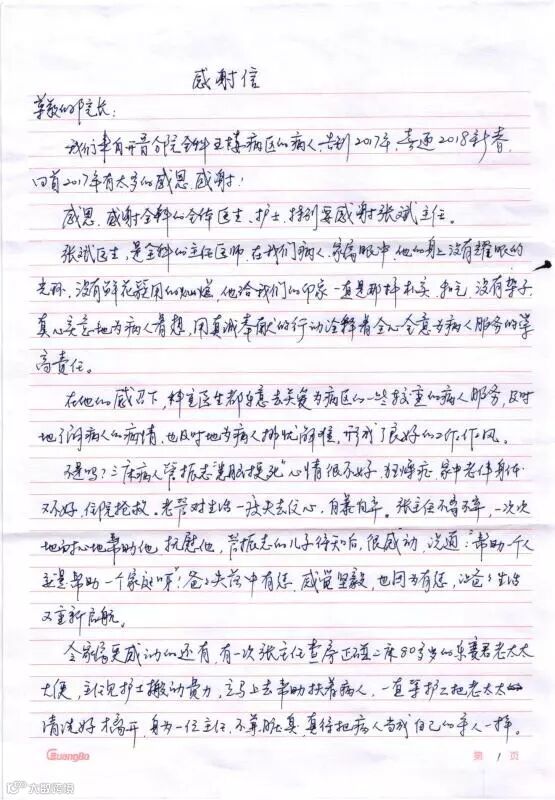 感谢信
尊敬的邵院长:
我们来自开晋分院全科五楼病区的病人告别2017年,喜迎2018新春,
回首2017年有太多的感恩、感谢!
感恩、感谢全科的全体医生、护士,特别要感谢张斌主任。
张斌医生,是全科的主任医师,在我们病人、家属眼中,他的身上没有耀眼的
光环,没有鲜花簇拥的灿烂,他给我们的印象一直是那样朴实、和气,没有架子,
真心实意地为病人着想,用真诚奉献的行动诠释着全心全意为病人服务的崇
高责任。
在他的感召下,科室医生都乐意去关爱为病区的一些较重的病人服务,及时
地了解病人的病情,也及时地为病人排忧解难,形成了良好的工作作风。
不是吗?三床病人管振志心情很不好,家中老伴身体
又不好,住院抢救。老管对生活一度失去信心,自暴自弃。张主任不离不弃,一次次
地耐心地帮助他、抚慰他,管振志的儿子得知后,很感动,说道:"帮助一个人
就是帮助一个家庭呀!爸爸失落中有您,感觉坚毅,也因为有您,让爸爸生活
又重新启航。
令家属更感动的还有,有一次张主任查房正碰二床80多岁的老太太
大便,主任见护士搬动费力,立马上去帮助扶着病人,一直等护工把老太太
清洗好才离开,身为一位主任,不怕脏臭,真得把病人当成自己的亲人一样。
GuangBo
第 1 页
大欧跨境